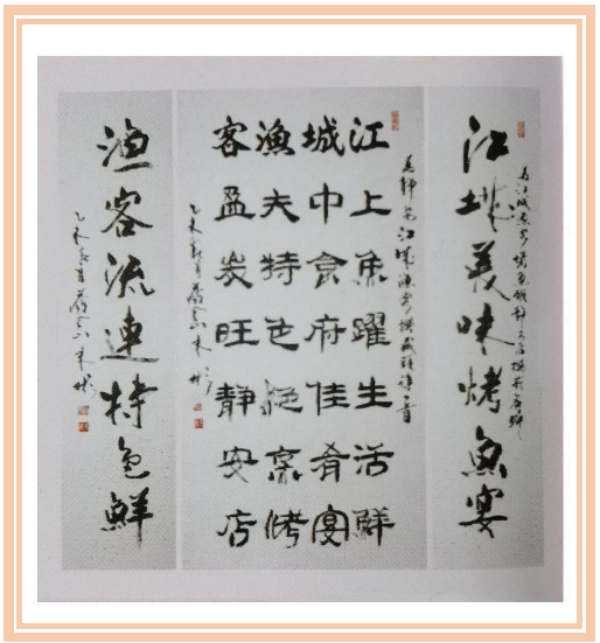 江城美味烤魚宴
江上魚躍生活鮮
城中食府佳肴宴
漁夫特色絕烹烤
客盈炭旺靜安店
乙未
渔客流連特色鮮
乙未